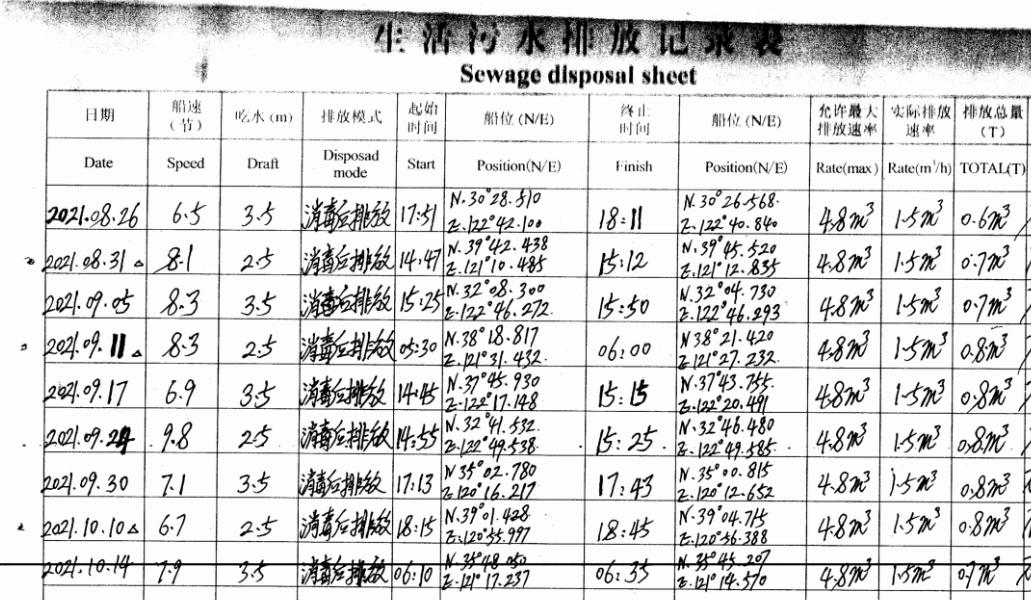 生活污水排放记录表
Sewage disposal sheet
日期 船速（节） 吃水 (m) 排放模式 起始时间 船位 (N/E) 终止时间 船位 (N/E) 允许最大排放速率 实际排放速率 排放总量（T）
Date Speed Draft Disposad mode Start Position(N/E) Finish Position(N/E) Rate(max) Rate(m³/h) TOTAL(T)
N.30°28.510 N.30°26.568.
2021.08.26 6.5 3.5 消毒后排放 17:51 E.122°42.100 18:11 E.122°40.840 4.8m³ 1.5m³ 0.6m³
N.39°42.438 N.39°45.520
2021.08.31 △ 8.1 2.5 消毒后排放 14:47 E.121°10.485 15:12 E.121°12.835 4.8m³ 1.5m³ 0.7m³
N.32°08.300 N.32°04.730
2021.09.05 8.3 3.5 消毒后排放 15:25 E.122°46.272. 15:50 E.122°46.293 4.8m³ 1.5m³ 0.7m³
N.38°18.817 N38°21.420
2021.09.11 △ 8.3 2.5 消毒后排放 05:30 E.121°31.432. 06:00 E.121°27.232. 4.8m³ 1.5m³ 0.8m³
N.37°45.930 N.37°43.755.
2021.09.17 6.9 3.5 消毒后排放 14:45 E.122°17.148 15:15 E.122°20.491 4.8m³ 1.5m³ 0.8m³
N.32°41.532. N.32°46.480
2021.09.24 9.8 2.5 消毒后排放 14:55 E.122°49.538. 15:25 E.122°49.585. 4.8m³ 1.5m³ 0.8m³
N.35°02.780 N.35°00.815
2021.09.30 7.1 3.5 消毒后排放 17:13 E.120°16.217 17:43 E.120°12.652 4.8m³ 1.5m³ 0.8m³
N.39°01.428 N.39°04.715
2021.10.10 △ 6.7 2.5 消毒后排放 18:15 E.120°55.997 18:45 E.120°56.388 4.8m³ 1.5m³ 0.8m³
N.35°48.050 N.35°45.207
2021.10.14 7.9 3.5 消毒后排放 06:10 E.121°17.237 06:35 E.121°14.570 4.8m³ 1.5m³ 0.7m³